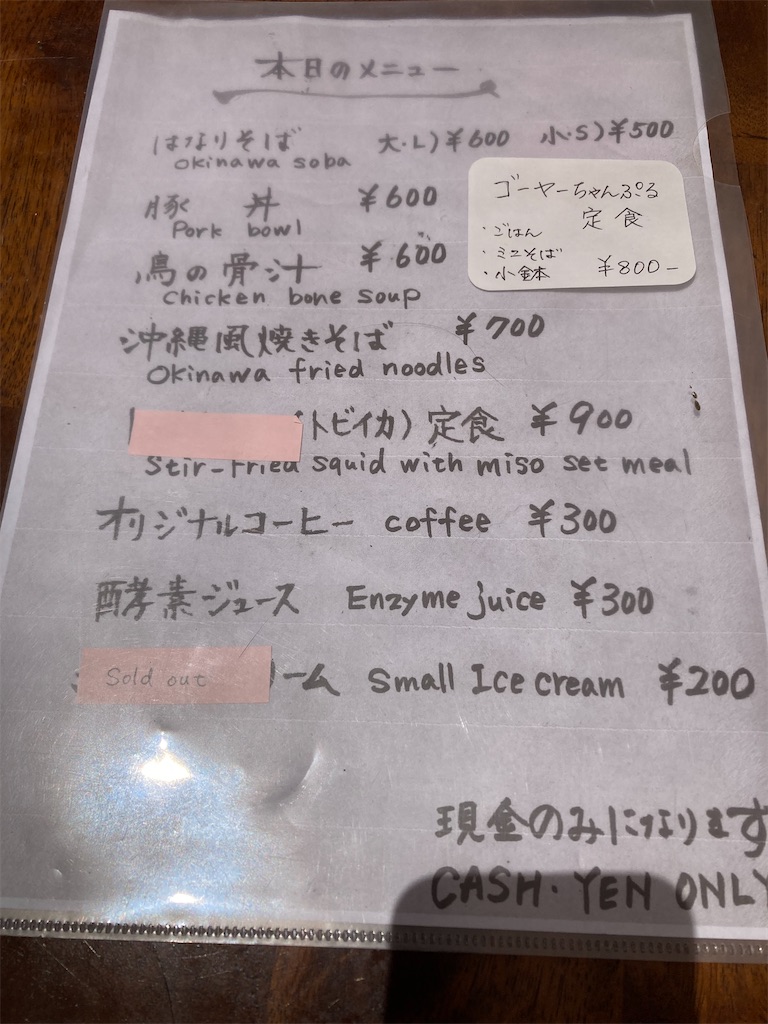 本日のメニュー
はなりそば 大・L)¥600 小・S)¥500
Okinawa soba
豚丼 ¥600
Pork bowl
鳥の骨汁 ¥600
Chicken bone soup
ゴーヤーちゃんぷる
定食
・ごはん
・ミニそば
・小鉢 ¥800-
沖縄風焼きそば ¥700
Okinawa fried noodles
(トビイカ)定食 ¥900
Stir-fried squid with miso set meal
オリジナルコーヒー coffee ¥300
酵素ジュース Enzyme juice ¥300
Sold out リーム Small Ice cream ¥200
現金のみになります
CASH・YEN ONLY